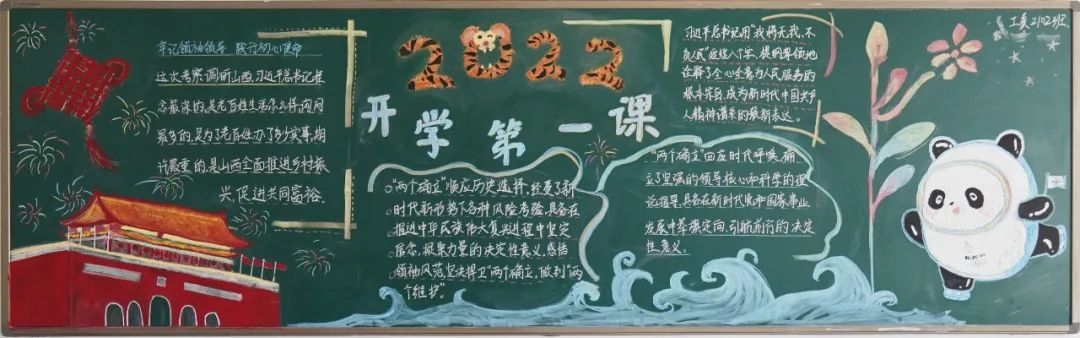 2022
开学第一课
牢记领袖领导 践行初心使命
这次考察调研山西,习近平总书记老
念最深的是老百姓生活怎么样,询问
最多的,是为了老百姓办了多少实事,相
计最重的是山西全面推进乡村振
兴,促进共同富裕.
"两个确立"顺应历史选择,经受了新
时代新形势下各种风险考验,具备在
推进中华民族伟大复兴进程中坚定
信念、凝聚力量的决定性意义,感悟
领袖风范坚决捍卫"两个确立,做到"两
个维护"。
习近平总书记用"我将无我,不
负人民"这短八个字,提纲挈领地
诠释了全心全意为人民服务的
根本宗旨,成为新时代中国共产
人精神谱系的最新表达。
"两个确立"回应时代呼唤,确
立了坚强的领导核心和科学的理
论指导,具备在新时代党和国家事业
发展中举旗定向,引航前行的决定
性意义。
工美2102班